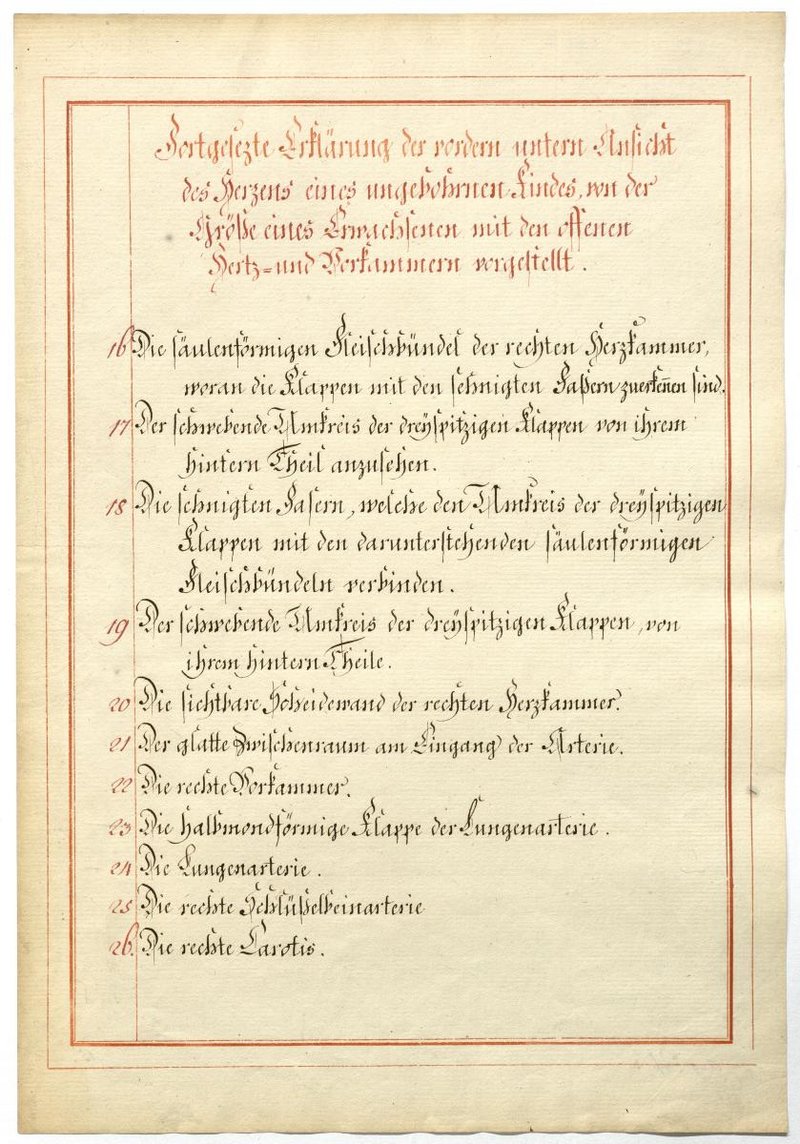 Fortgesezte Erklärung der vordern untern Ansicht
des Herzens eines ungebohrnen Kindes, von der
Größe eines Erwachsenen mit den offenen
Hertz- und Vorkammern vorgestellt.
16 Die säulenförmigen Fleischbündel der rechten Herzkammer,
woran die Klappen mit den sehnigten Faßern zuerkeñen sind.
17 Der schwebende Umkreis der dreyspitzigen Klappen von ihrem
hintern Theil anzusehen.
18 Die sehnigten Fasern, welche den Umkreis der dreyspitzigen
Klappen mit den darunterstehenden säulenförmigen
Fleischbündeln verbinden.
19 Der schwebende Umkreis der dreyspitzigen Klappen, von
ihrem hintern Theile.
20 Die sichtbare Scheidewand der rechten Herzkammer.
21 Der glatte Zwischenraum am Eingang der Arterie.
22 Die rechte Vorkammer.
23 Die halbmondförmige Klappe der Lungenarterie.
24 Die Lungenarterie.
25 Die rechte Schlüßelbeinarterie
26. Die rechte Carotis.